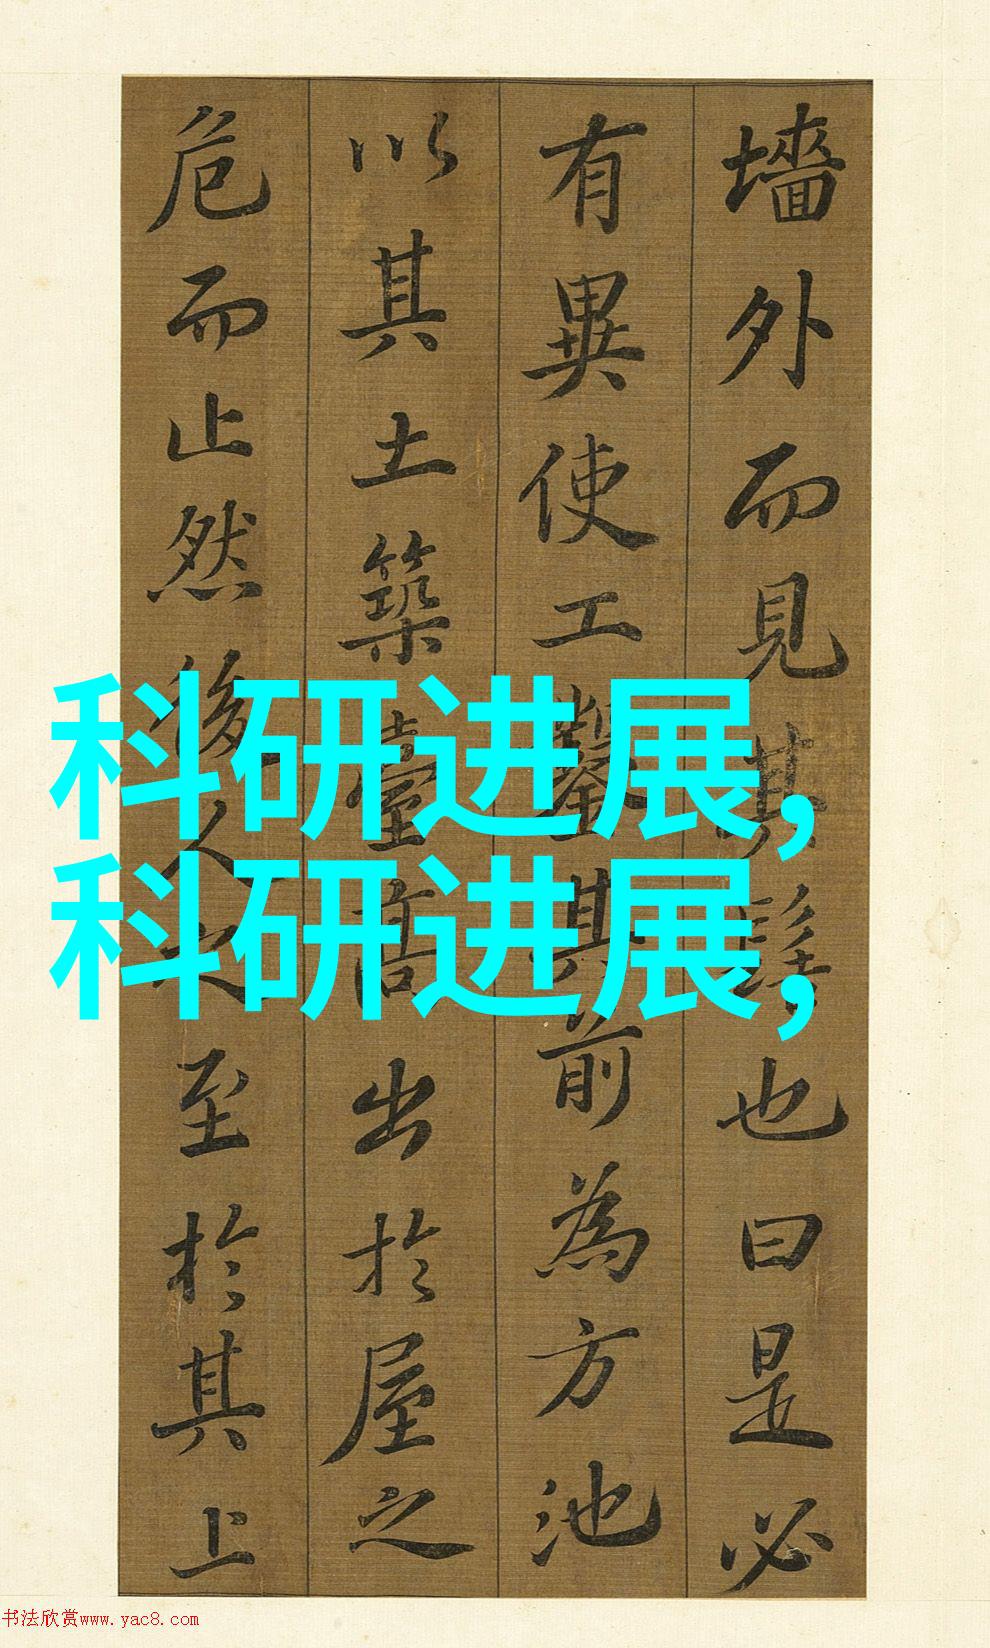 墻外而見其髻也曰是必
有異使工鑿其前為方池
以其土築臺高出於屋之
危而止然後人之至於其上
科研进展,
科研进展,
书法欣赏www.yac8.com